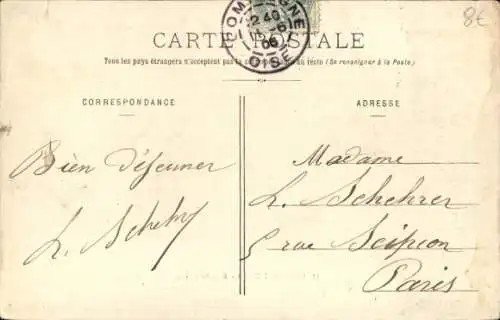 8€
COMPIÈGNE
12 40
06
OISE
CARTE POSTALE
Tous les pays étrangers n'acceptent pas la correspondance au recto (Se renseigner à la Poste)
CORRESPONDANCE
ADRESSE
Bien déjeuner
Madame
L. Schehrer
5 rue Scipion
Paris